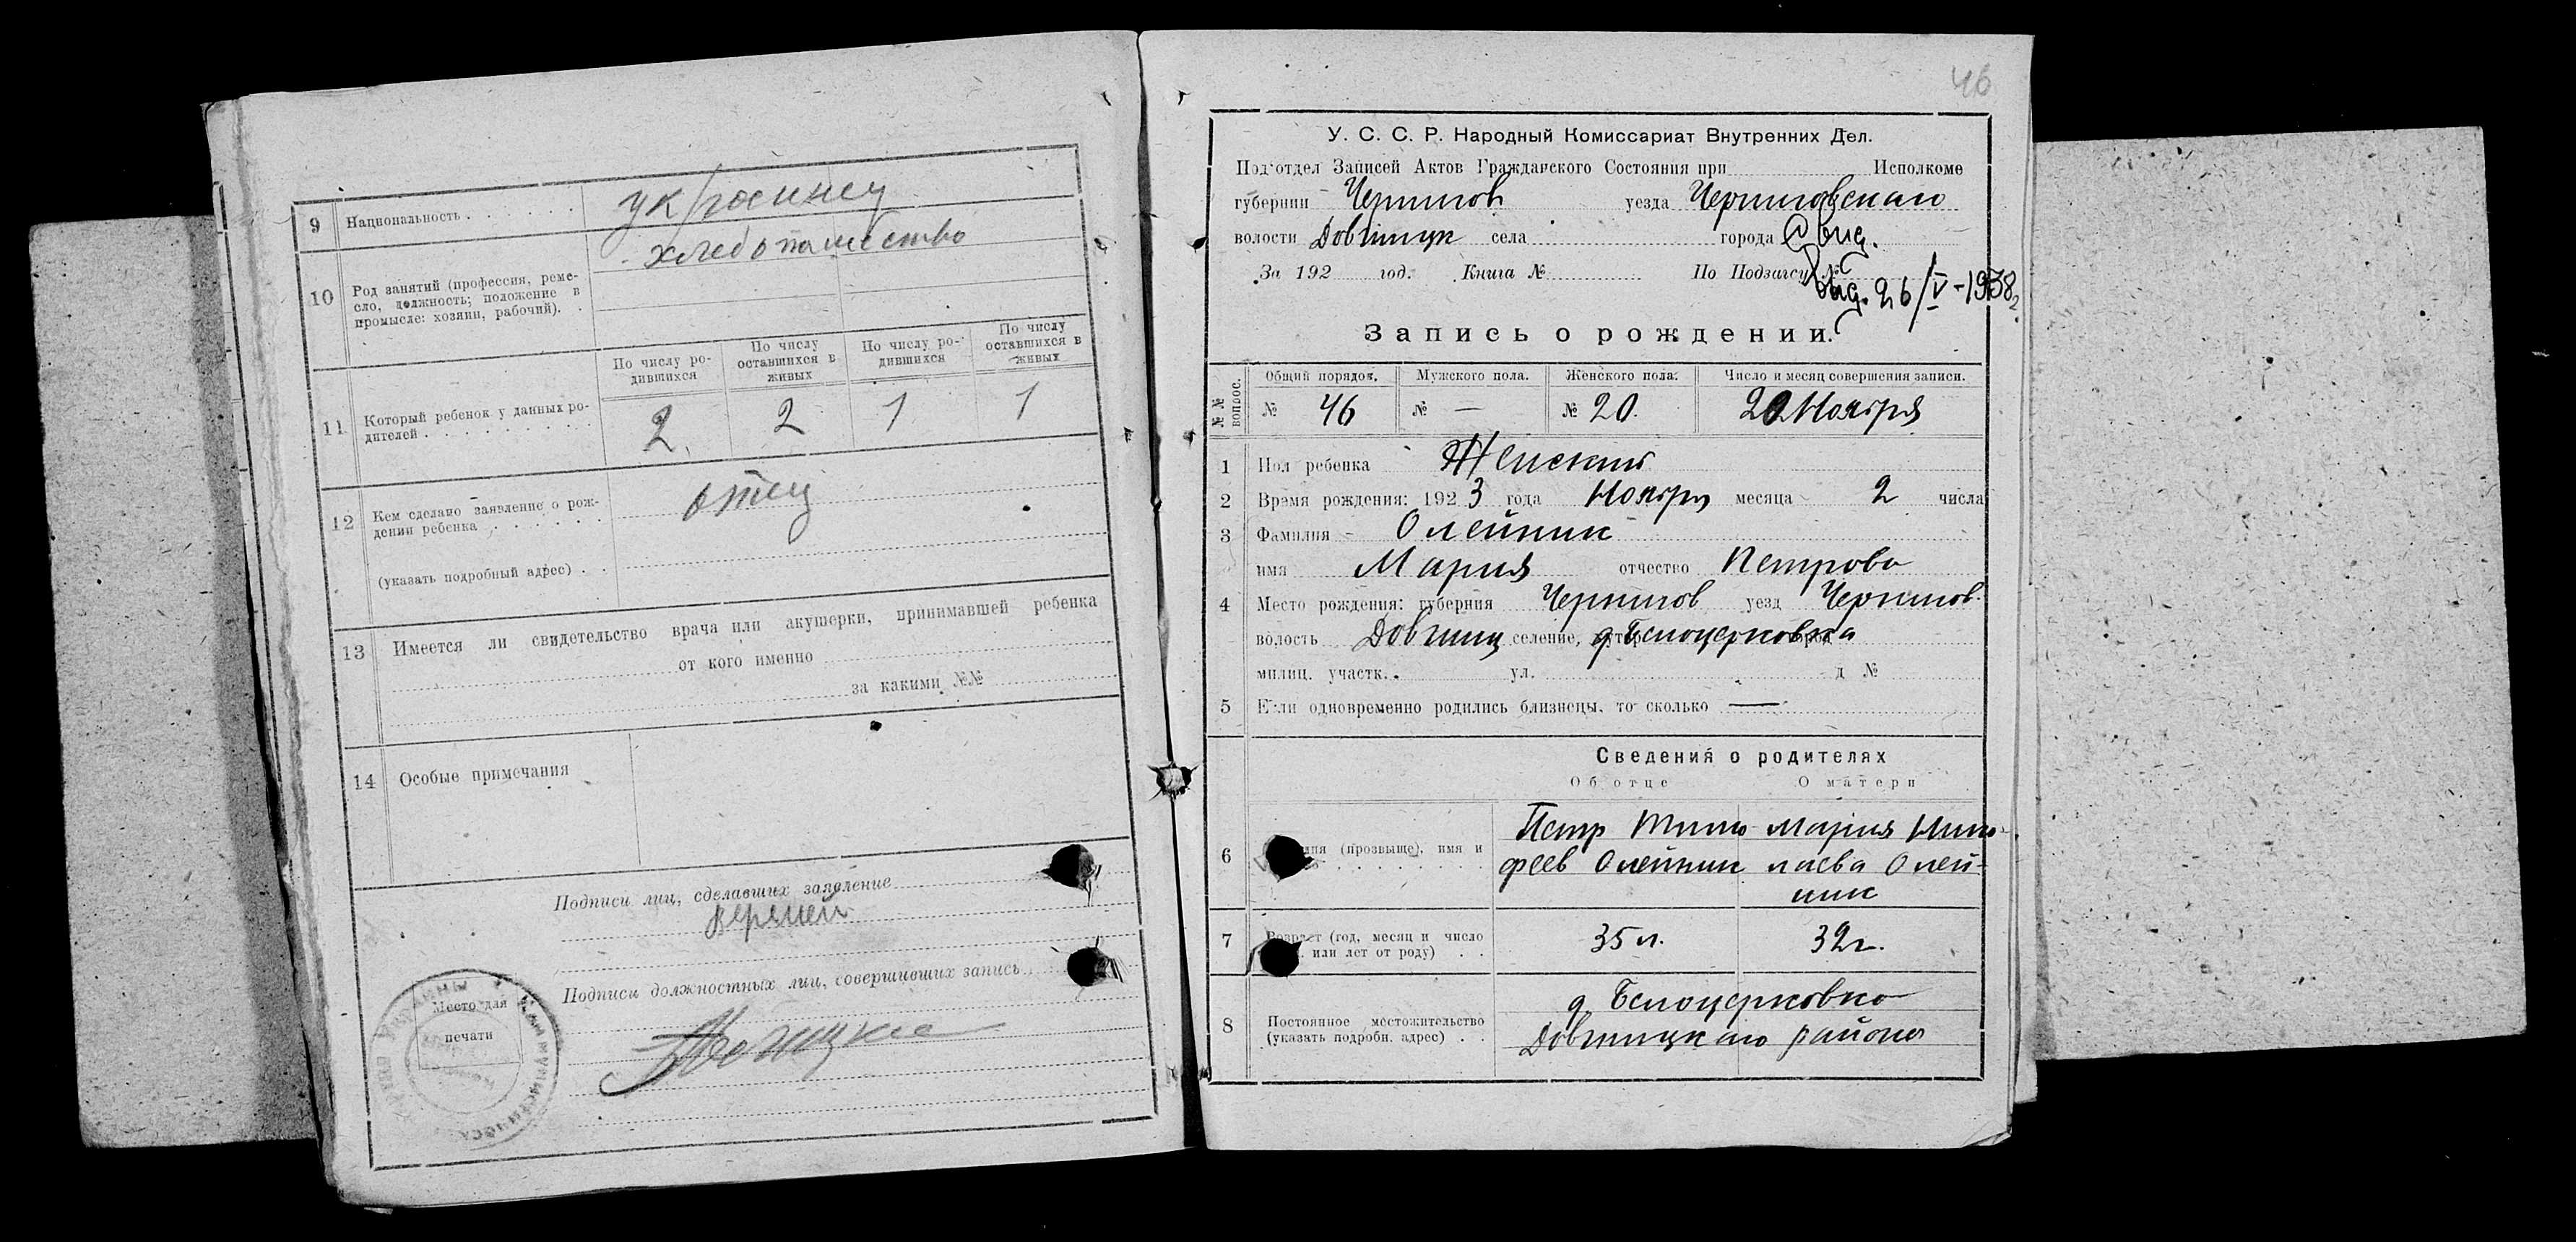 9 Национальность . . . . . . украинец
хлебопашество
10 Род занятий (профессия, реме-
сло, должность; положение в
промысле: хозяин, рабочий). .
По числу ро-
дившихся
По числу
оставшихся в
живых
По числу ро-
дившихся
По числу
оставшихся в
живых
11 Который ребенок у данных ро-
дителей . . . . . . . . .
2. 2 1 1
12 Кем сделано заявление о рож-
дении ребенка . . . . . . отец
(указать подробный адрес) . .
13 Имеется ли свидетельство врача или акушерки, принимавшей ребенка
от кого именно
за какими №№
14 Особые примечания
Подписи лиц, сделавших заявление
Подписи должностных лиц, совершивших запись
Место для
печати
46
У. С. С. Р. Народный Комиссариат Внутренних Дел.
Подотдел Записей Актов Гражданского Состояния при Исполкоме
губернии Чернигов уезда Черниговскаго
волости Довжицк села города
За 192 год. Книга № По Подзагсу №
26/V-1938
Запись о рождении.
№ № вопрос.
Общий порядок. Мужского пола. Женского пола. Число и месяц совершения записи.
№ 46 № — № 20. 20 Ноября
1 Пол ребенка Женский
2 Время рождения: 1923 года Ноября месяца 2 числа
3 Фамилия Олейник
имя Мария отчество Петрова
4 Место рождения: губерния Чернигов уезд Чернигов.
волость Довжиц селение, д Белоцерковка
милиц. участк. ул. д №
5 Если одновременно родились близнецы, то сколько —
Сведения о родителях
Об отце О матери
6 (прозвыще), имя и
Петр Тимо-
феев Олейник
Мария Нико-
лаева Олей-
ник
7 Возраст (год, месяц и число
или лет от роду) . . 35 л. 32 г.
8 Постоянное местожительство
(указать подробн. адрес) . .
д Белоцерковка
Довжицкаго района